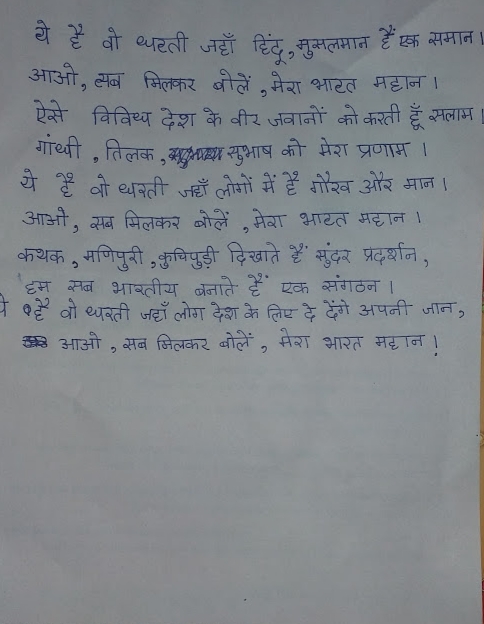 ये है वो धरती जहाँ हिंदू, मुसलमान हैं एक समान।
आओ, सब मिलकर बोलें, मेरा भारत महान।
ऐसे विविध देश के वीर जवानों को करती हूँ सलाम।
गांधी, तिलक, सुभाष को मेरा प्रणाम।
ये है वो धरती जहाँ लोगों में है गौरव और मान।
आओ, सब मिलकर बोलें, मेरा भारत महान।
कथक, मणिपुरी, कुचिपुड़ी दिखाते हैं सुंदर प्रदर्शन,
हम सब भारतीय बनाते हैं एक संगठन।
ये है वो धरती जहाँ लोग देश के लिए दे देंगे अपनी जान,
आओ, सब मिलकर बोलें, मेरा भारत महान!